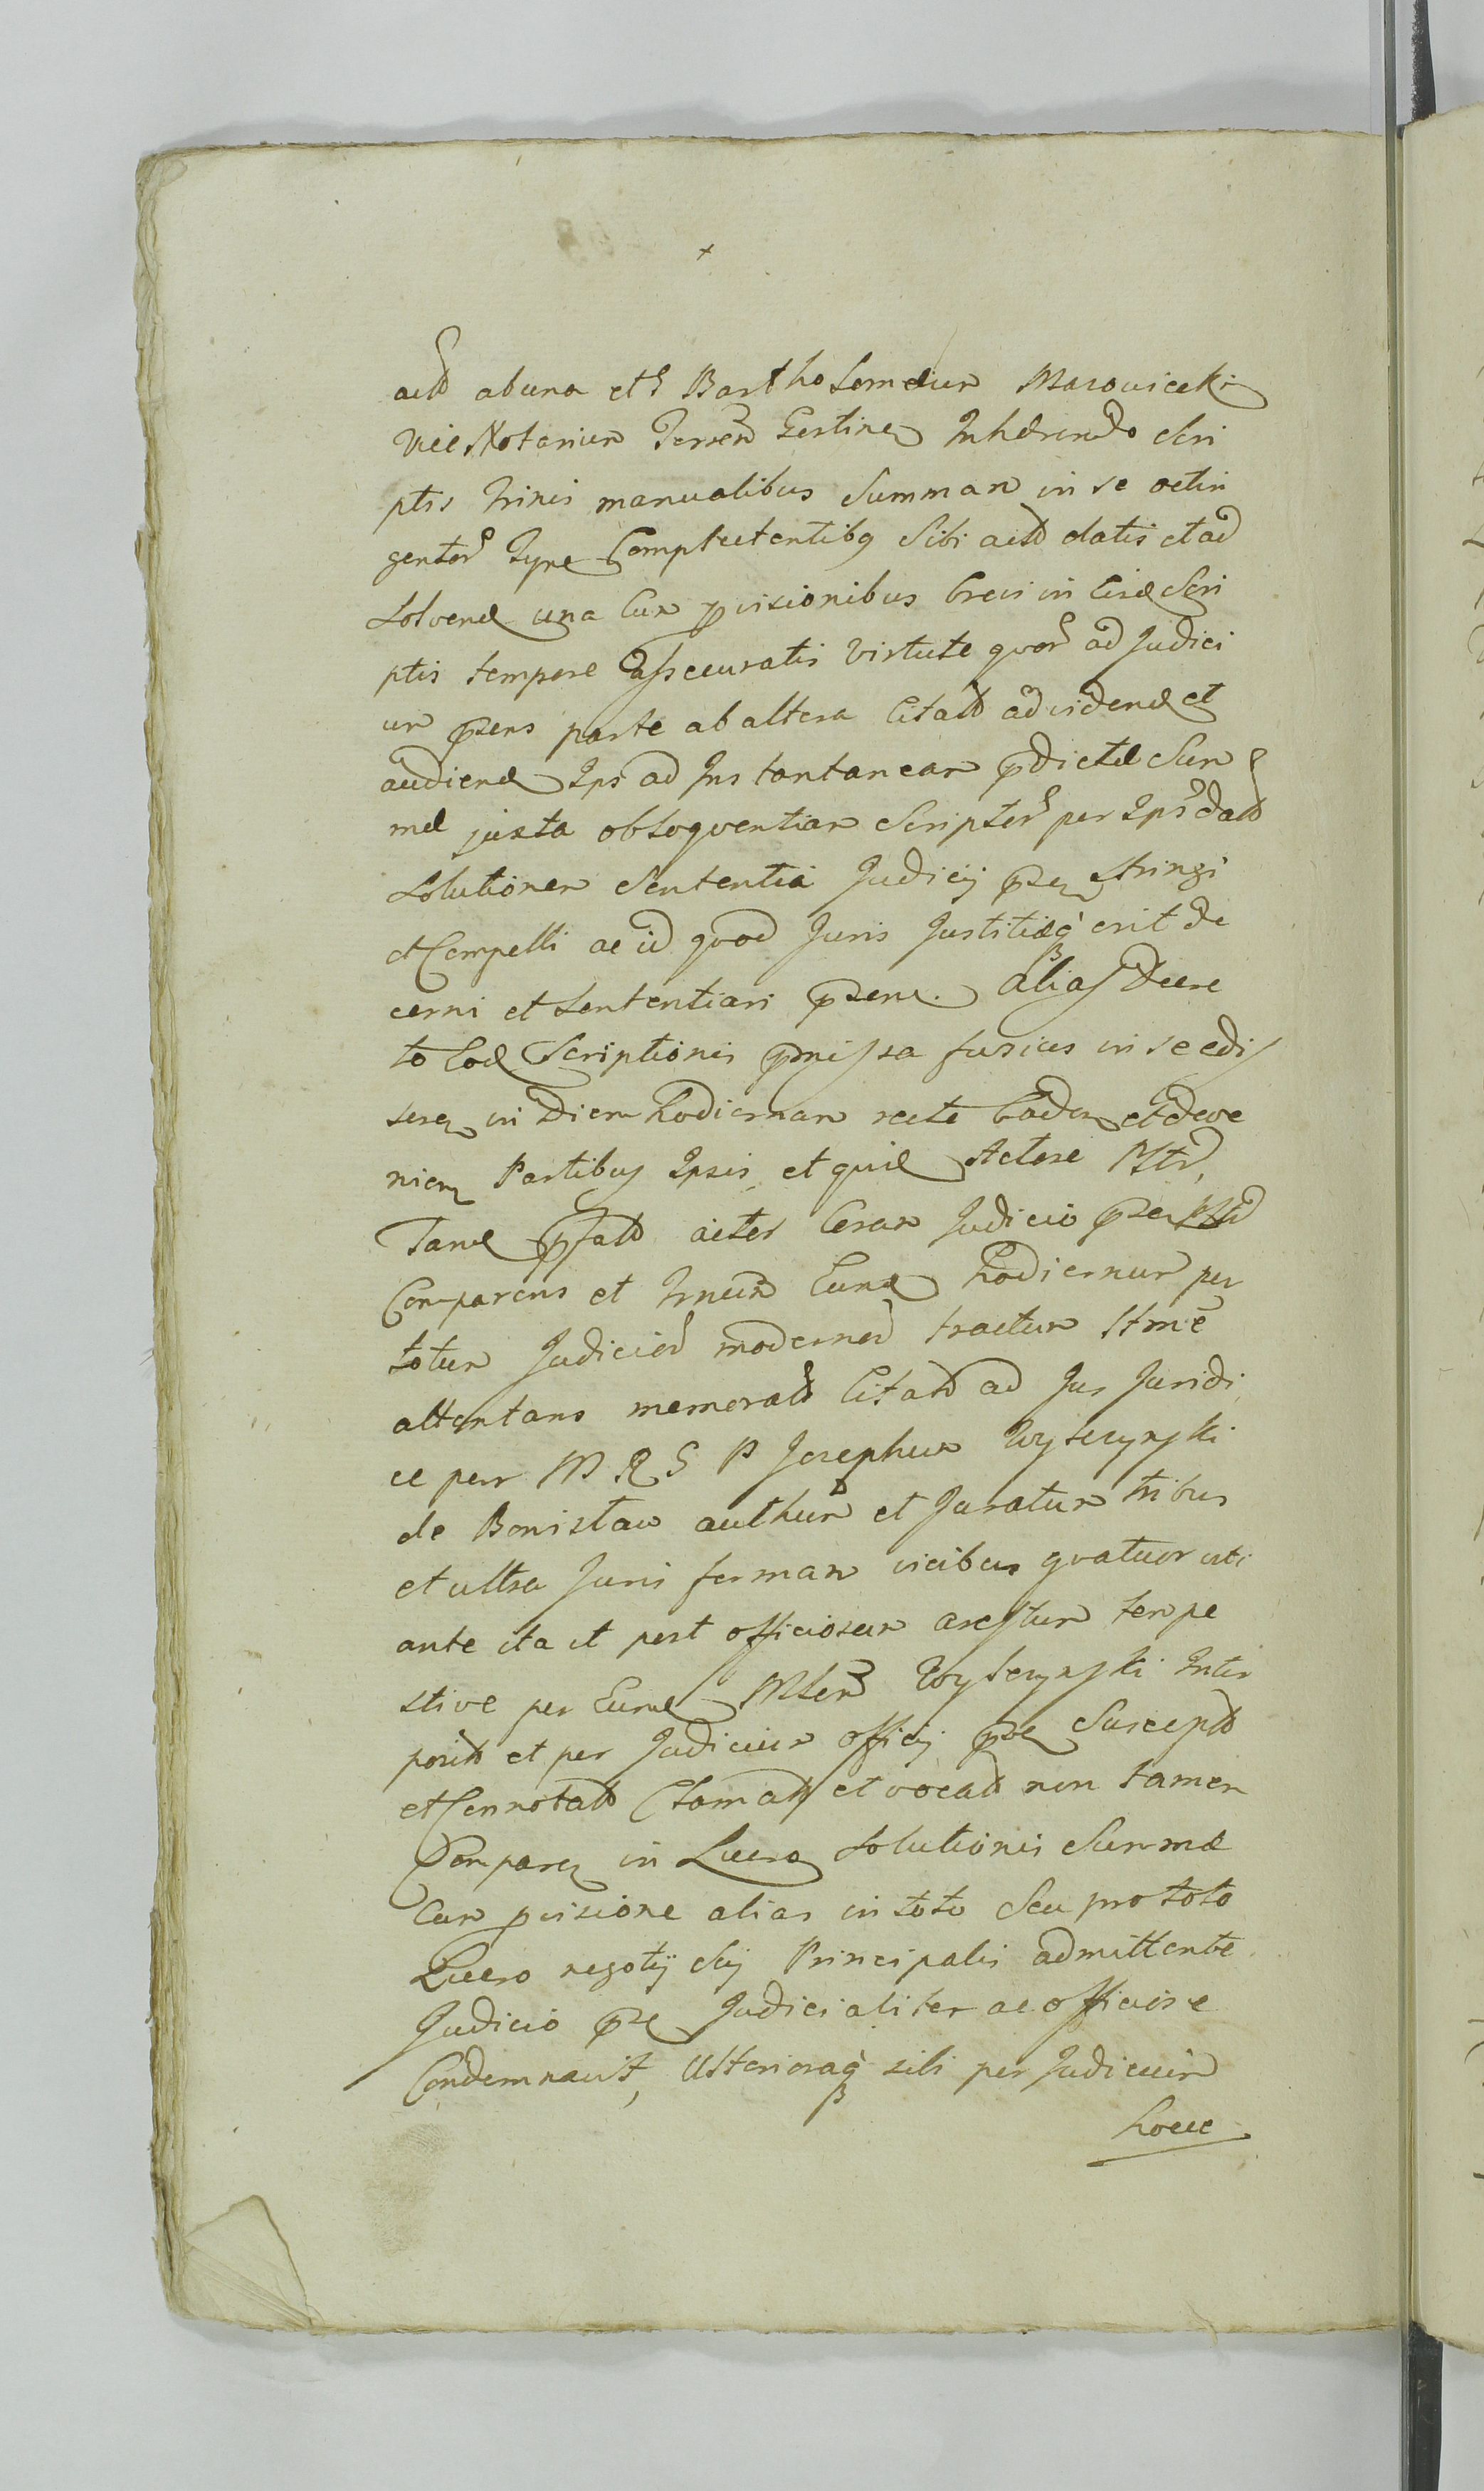 x
acto ab una et Bartholomæum Mazowiecki
Vice Notarium Terren Gostinen Inhærendo Scri
ptis trinis manualibus Summam in se octin
gentor Tynf Complectentibq Sibi acto datis et ad
solvend una cum pvisionibus breis in eisd Scri
ptis tempore assecuratis virtute quor ad Judici
um psens parte ab altera Citato ad vidend et
audiend Ips ad Instantaneam prdictæ Sum
mæ juxta obloquentiam Scriptor per Ips dato
Solutionem Sententia Judicij psen stringi
et Compelli ac id quod Juris Justitiæq erit de
cerni et Sententiari psen. alias Decre
to Cod Scriptionis pmissa fusius in se edis
seren in Diem hodiernam recte Caden et deve
nien Partibus Ipsis et quid Actore Mtd
Tand pfato acter Coram Judicio psen
Comparens et Trnum Eund hodiernum per
totum Judicior modernor tractum Itme
attentans memorato Citato ad Jus Juridi
ce per M R S P Josephum Wysoczynski
de Bonislaw authum et Juratum tribus
et ultra Juris formam vicibus quatuor uti
ante ita et post officiosum arestum tempe
stive per Eund Mlem Wysoczynski Inter
posito et per Judicium officij pse Suscepto
et Connotato Clamato et vocato non tamen
Comparen in Lucro Solutionis Summæ
cum pvisione alias in toto Seu pro toto
Lucro negotij Sui Principalis admittente
Judicio pse Judicialiter ac officiose
Condemnavit, Ulterioraq sibi per Judicium
hocce